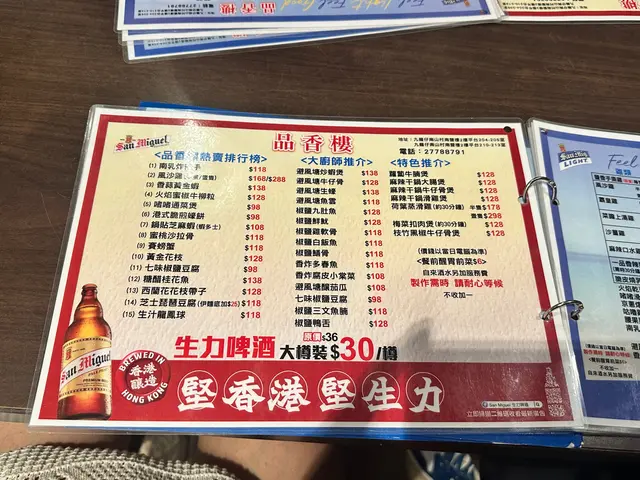 San Miguel
品香樓
地址：九龍仔南山村南豐樓2樓平台204-206室
九龍仔南山村南豐樓2樓平台210-213室
電話：27788791
<品香樓熱賣排行榜>
(1) 南乳炸子 $118
(2) 風沙雞 $168/$288
(3) 香蒜黃金蝦 $138
(4) 火焰蜜椒牛柳粒 $128
(5) 啫啫通菜煲 $98
(6) 港式脆煎蠔餅 $98
(7) 鍋貼芝麻蝦(蝦多士) $108
(8) 蜜桃沙拉骨 $118
(9) 賽螃蟹 $98
(10) 黃金花枝 $128
(11) 七味椒鹽豆腐 $98
(12) 糖醋桂花魚 $138
(13) 西蘭花花枝帶子 $128
(14) 芝士琵琶豆腐(伊麵底加$25) $118
(15) 生汁龍鳳球 $118
<大廚師推介>
避風塘炒蝦煲 $138
避風塘牛仔骨 $128
避風塘生蠔 $138
避風塘魚雲 $118
椒鹽九肚魚 $128
椒鹽鮮魷 $128
椒鹽雞軟骨 $118
椒鹽白飯魚 $118
椒鹽鱔骨 $118
香炸多春魚 $118
香炸腐皮小棠菜 $108
避風塘釀茄瓜 $108
七味椒鹽豆腐 $98
椒鹽三文魚腩 $118
椒鹽鴨舌 $128
<特色推介>
蘿蔔牛腩煲 $128
麻辣干鍋大腸煲 $128
麻辣干鍋牛仔骨煲 $128
麻辣干鍋滑雞煲 $128
荷葉蒸滑雞(約30分鐘) 半隻$178
壹隻$298
梅菜扣肉煲(約30分鐘) $128
枝竹黑椒牛仔骨煲 $128
(價錢以當日電腦為準)
<餐前醒胃前菜$6>
自來酒水另加服務費
製作需時 請耐心等候
不收加一
原價$36
生力啤酒 大樽裝$30/樽
BREWED IN
香港
釀造
HONG KONG
堅香港堅生力
San Miguel 生力啤酒
San Miguel
LIGHT
Feel